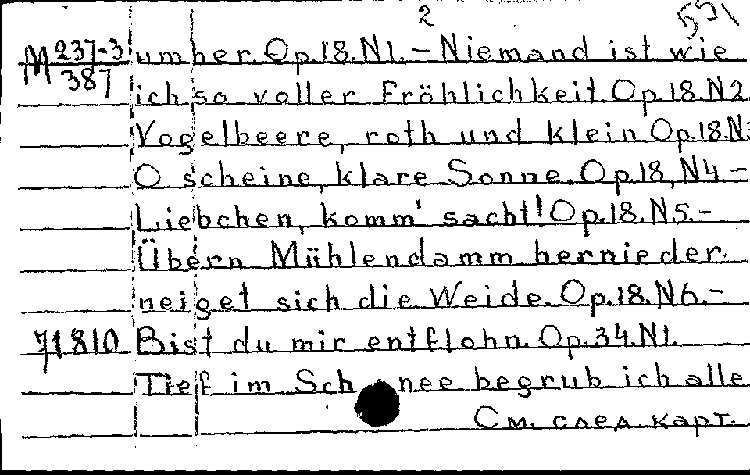 2 551
M 237-3/387 umher. Op.18. N1. – Niemand ist wie
ich so voller Fröhlichkeit. Op.18. N2
Vogelbeere, roth und klein Op.18. N
O scheine, klare Sonne. Op.18, N4 –
Liebchen, komm' sacht! Op.18. N5. –
Übern Mühlendamm hernieder
neiget sich die Weide. Op.18. N6. –
71810 Bist du mir entflohn. Op.34. N1.
Tief im Schnee begrub ich alle
См. след. карт.